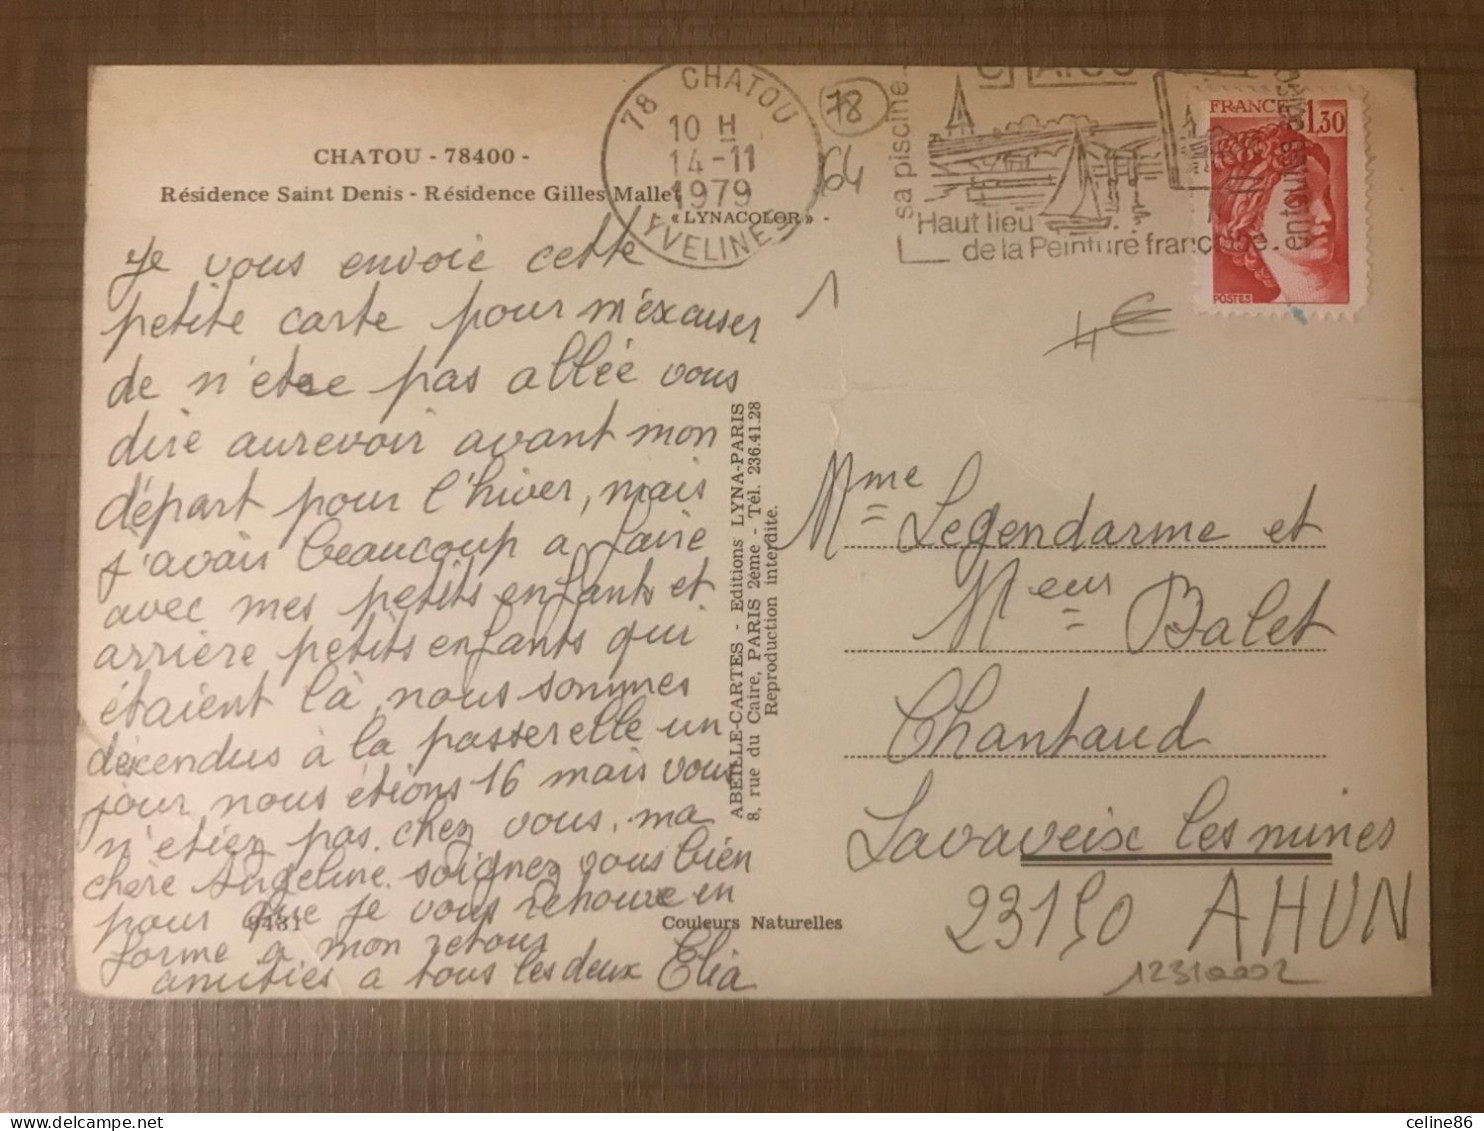 CHATOU - 78400 -
Résidence Saint Denis - Résidence Gilles Mallet
« LYNACOLOR » -
78 CHATOU
10 H
14-11
1979
YVELINES
78
64
CHATOU
sa piscine
Haut lieu
de la Peinture française.
entourée
FRANCE
1,30
POSTES
1
4€
Je vous envoie cette
petite carte pour m'éxcuser
de n'être pas allée vous
dire aurevoir avant mon
départ pour l'hiver, mais
j'avais beaucoup a faire
avec mes petits enfants et
arrière petits enfants qui
étaient là, nous sommes
décendus à la passerelle un
jour nous étions 16 mais vous
n'etiez pas chez vous. ma
chère Angeline. soignez vous bien
pour que je vous retrouve en
forme a mon retour
amitiés a tous les deux Elia
9431
Couleurs Naturelles
ABEILLE-CARTES - Editions LYNA-PARIS
8, rue du Caire, PARIS 2ème - Tél. 236.41.28
Reproduction interdite.
Mme Legendarme et
Meur Balet
Chantaud
Lavaveix les mines
23150 AHUN
12310002
celine86